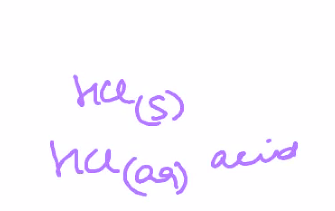 HCl(s)
HCl(aq) acid